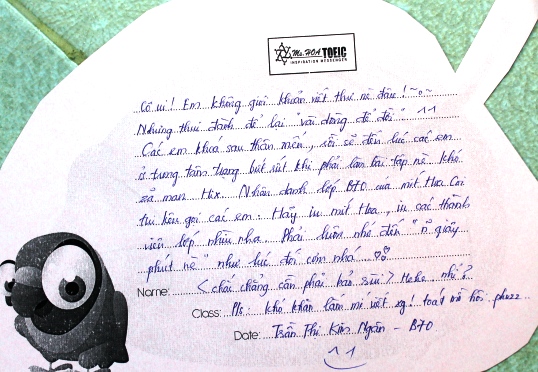 Ms. HOA TOEIC
INSPIRATION MESSENGER
Cô ui! Em không giỏi khoản viết thư nè đâu! ~o~
Nhưng thui đành để lại "vài dòng để đời" ^^
Các em khoá sau thân mến, rồi sẽ đến lúc các em
ở trong tâm trạng bứt rứt khi phải làm bài tập nè khó
dã man Hix. Nhân danh lớp B70 của mít Hoa Coi
tui kêu gọi các em: Hãy iu mít Hoa, iu các thành
viên lớp nhìu nha. Phải luôn nhớ đến "n giây
phút nè" như lúc đói cơm nhá ♡♡
Name: < chắc chẳng cần phải bảo > Hehe nhỉ?
Class: Ps: khó khăn lắm mí viết xg! toát mồ hôi. phezz...
Date: Trần Thị Kim Ngân - B70
^^